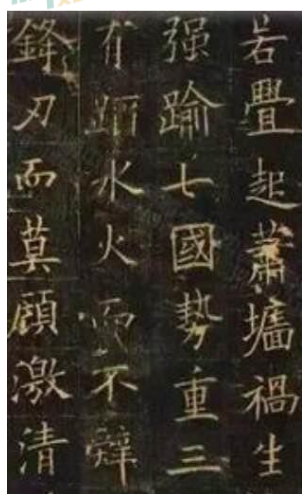 若疊起蕭墻禍生
强踰七國勢重三
有蹈水火而不辤
鋒刃而莫顧激清